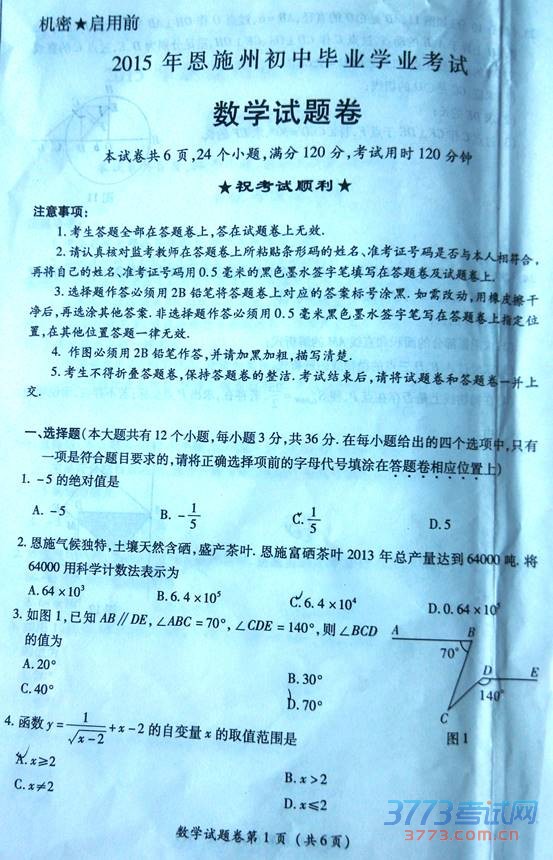 机密★启用前
2015 年恩施州初中毕业学业考试
数学试题卷
本试卷共 6 页,24 个小题,满分 120 分,考试用时 120 分钟
★祝考试顺利★
注意事项:
1. 考生答题全部在答题卷上,答在试题卷上无效.
2. 请认真核对监考教师在答题卷上所粘贴条形码的姓名、准考证号码是否与本人相符合,
再将自己的姓名、准考证号码用 0.5 毫米的黑色墨水签字笔填写在答题卷及试题卷上.
3. 选择题作答必须用 2B 铅笔将答题卷上对应的答案标号涂黑. 如需改动,用橡皮擦干
净后,再选涂其他答案. 非选择题作答必须用 0.5 毫米黑色墨水签字笔写在答题卷上指定位
置,在其他位置答题一律无效.
4. 作图必须用 2B 铅笔作答,并请加黑加粗,描写清楚.
5. 考生不得折叠答题卷,保持答题卷的整洁. 考试结束后,请将试题卷和答题卷一并上
交.
一、选择题(本大题共有 12 个小题,每小题 3 分,共 36 分. 在每小题给出的四个选项中,只有
一项是符合题目要求的,请将正确选项前的字母代号填涂在答题卷相应位置上)
1. -5 的绝对值是
A. -5 B. -1/5 C. 1/5 D. 5
2. 恩施气候独特,土壤天然含硒,盛产茶叶. 恩施富硒茶叶 2013 年总产量达到 64000 吨, 将
64000 用科学计数法表示为
A. 64 × 10³ B. 6.4 × 10⁵ C. 6.4 × 10⁴ D. 0.64 × 10⁵
3. 如图 1,已知 AB∥DE, ∠ABC = 70°, ∠CDE = 140°,则 ∠BCD
的值为
A. 20° B. 30°
C. 40° D. 70°
A B
70°
D E
140°
C
图 1
4. 函数 y = 1/√(x-2) + x - 2 的自变量 x 的取值范围是
A. x≥2 B. x > 2
C. x≠2 D. x≤2
数学试题卷第 1 页 (共 6 页)
3773考试网
3773.com.cn